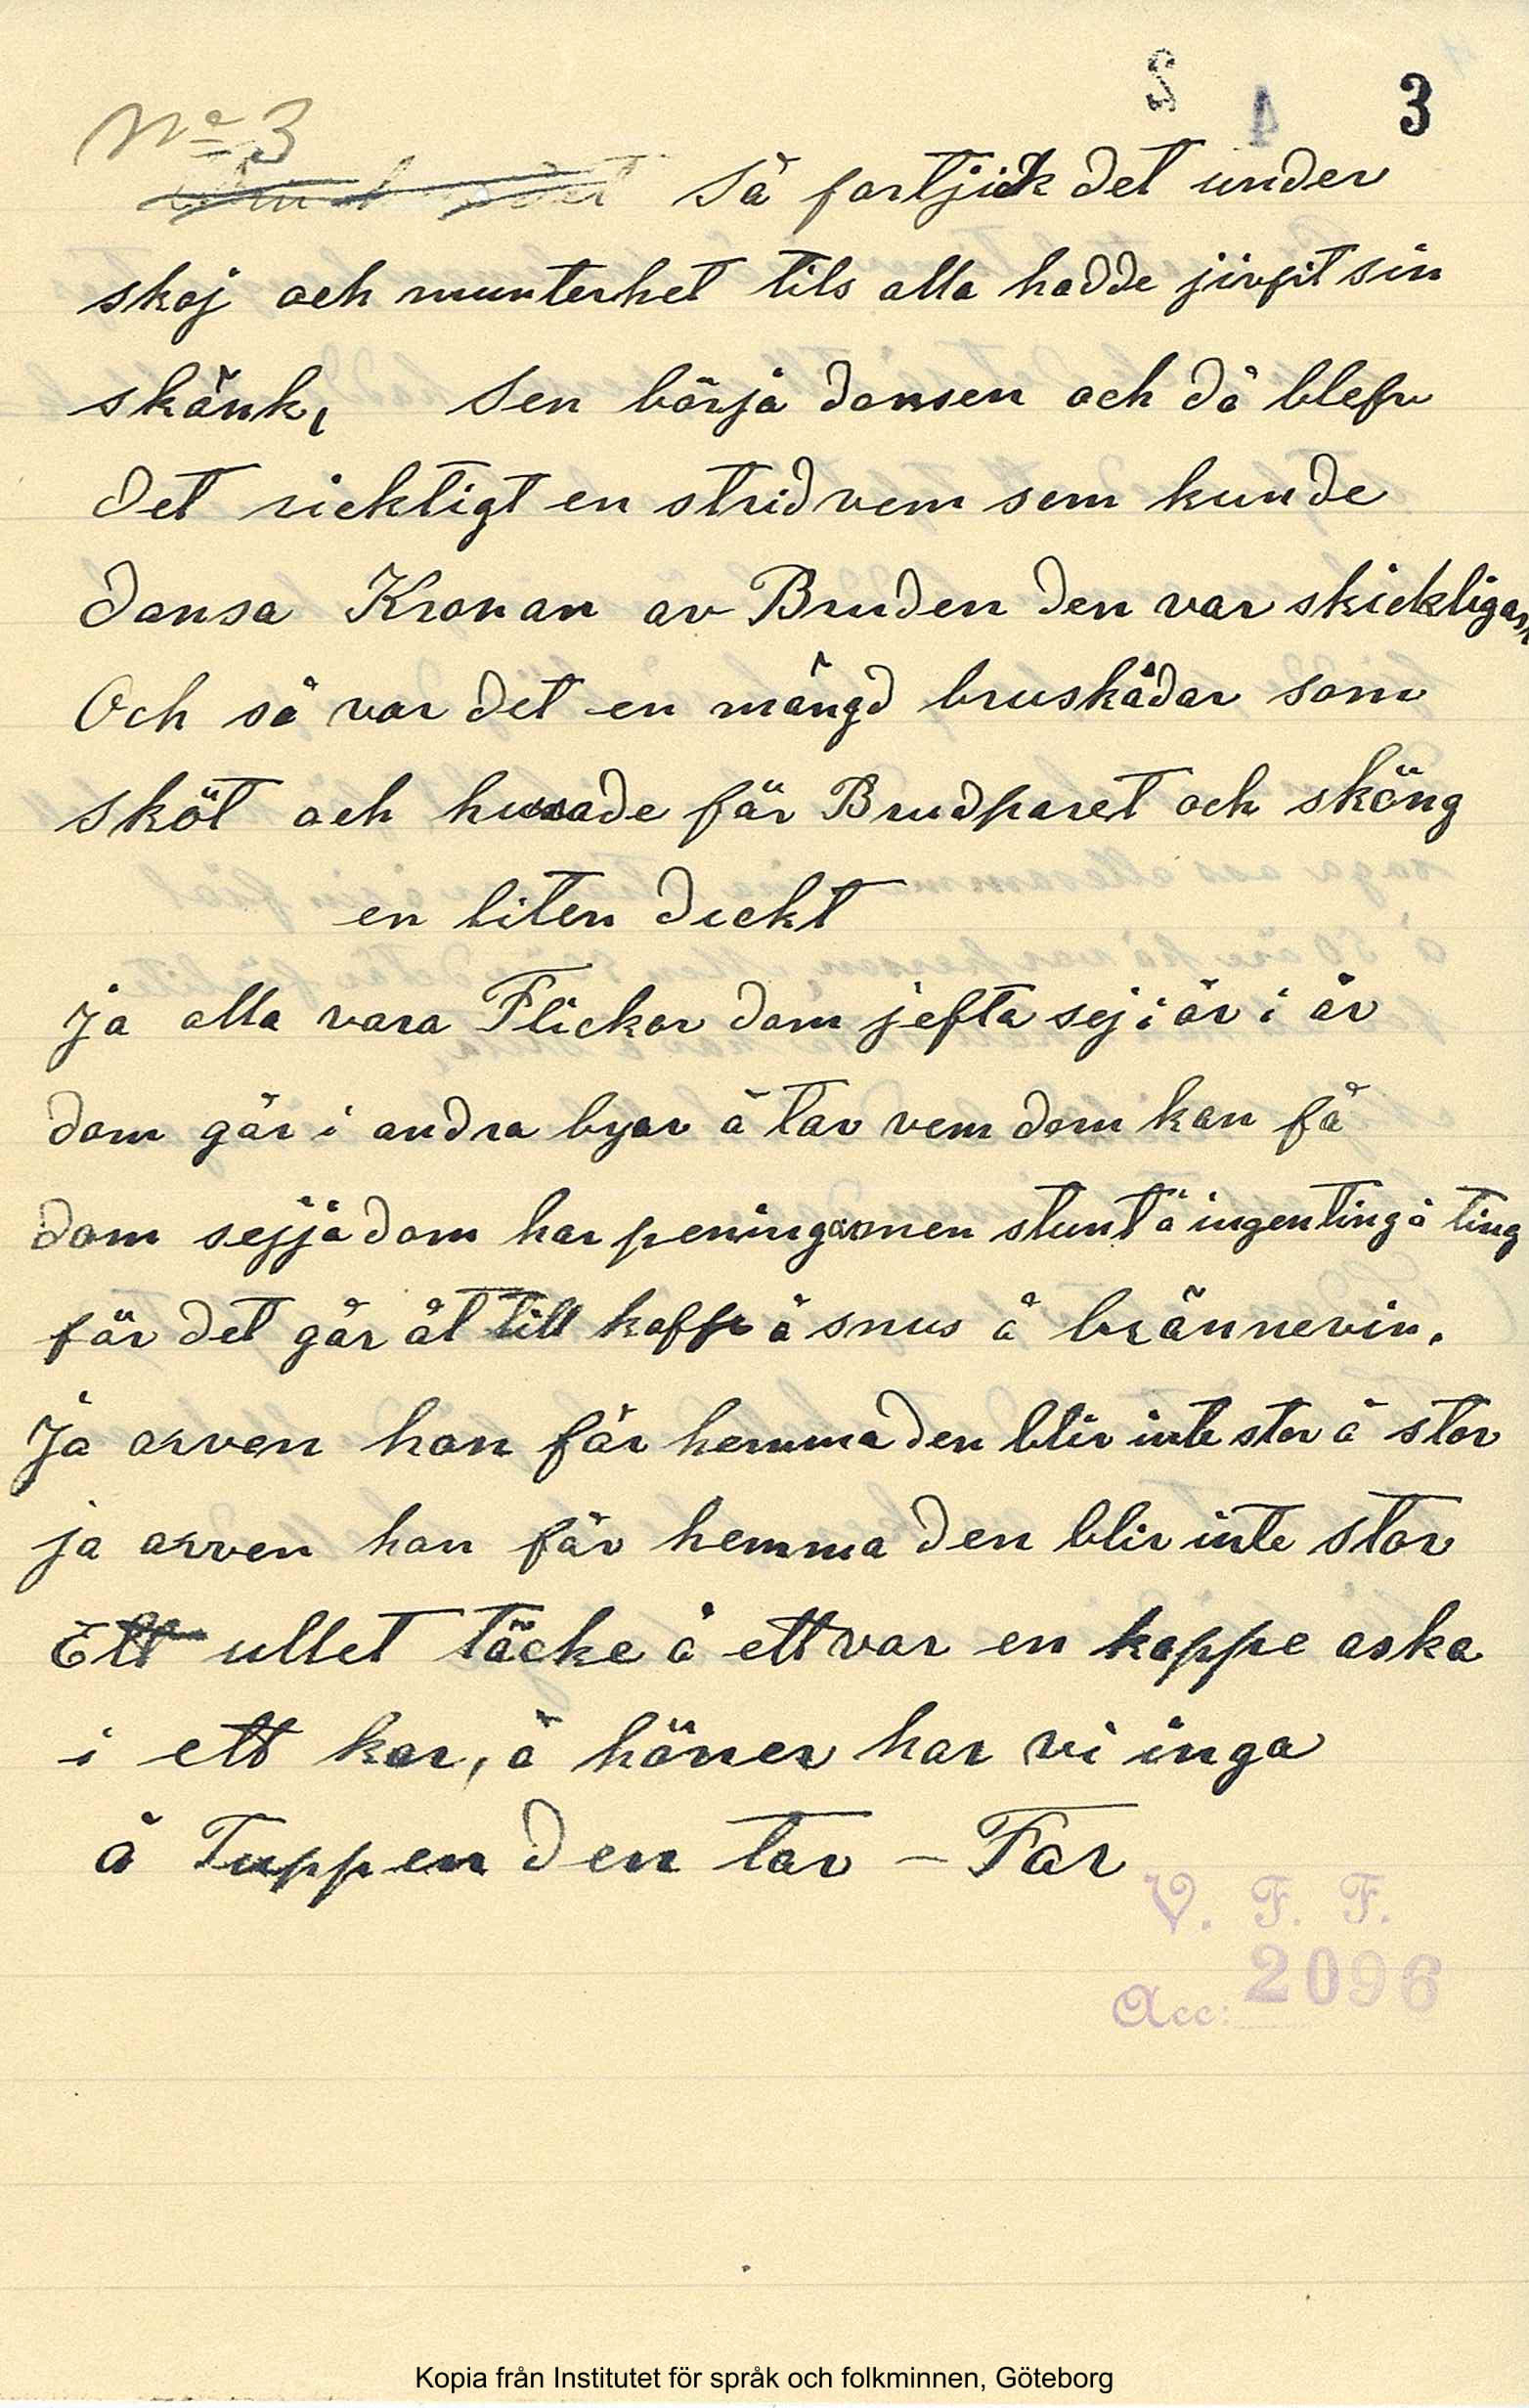 3
No 3
Så fortjick det under
skoj och munterhet tils alla hadde jivfit sin
skänk, Sen börja dansen och då blefv
det ricktigt en strid vem som kunde
dansa Kronan av Bruden den var skickligast
Och så var det en mängd bruskådar som
sköt och hurrade för Brudparet och sköng
en liten dickt
Ja alla vara Flickor dom jefta sej i år i år
dom går i andra byar å tar vem dom kan få
dom sejja dom har peningar men stunt å ingenting å ting
får det går åt till kaffe å snus å brännevin.
Ja arven han får hemma den blir inte stor å stor
ja arven han får hemma den blir inte stor
Ett ullet täcke å ett var en kappe aska
i ett kar, å höner har vi inga
å Tuppen den tar – Far
V. F. F.
Acc: 2096
Kopia från Institutet för språk och folkminnen, Göteborg